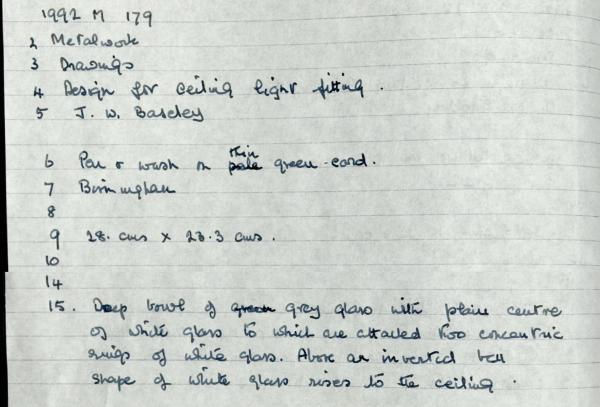 1992 M 179
2 Metalwork
3 Drawings
4 Design for ceiling light fitting.
5 J. W. Baseley
6 Pen & wash on thin green card.
7 Birmingham
8
9 28. cms x 23.3 cms.
10
14
15. Deep bowl of grey glass with plain centre
of white glass to which are attached two concentric
rings of white glass. Above an inverted bell
shape of white glass rises to the ceiling.